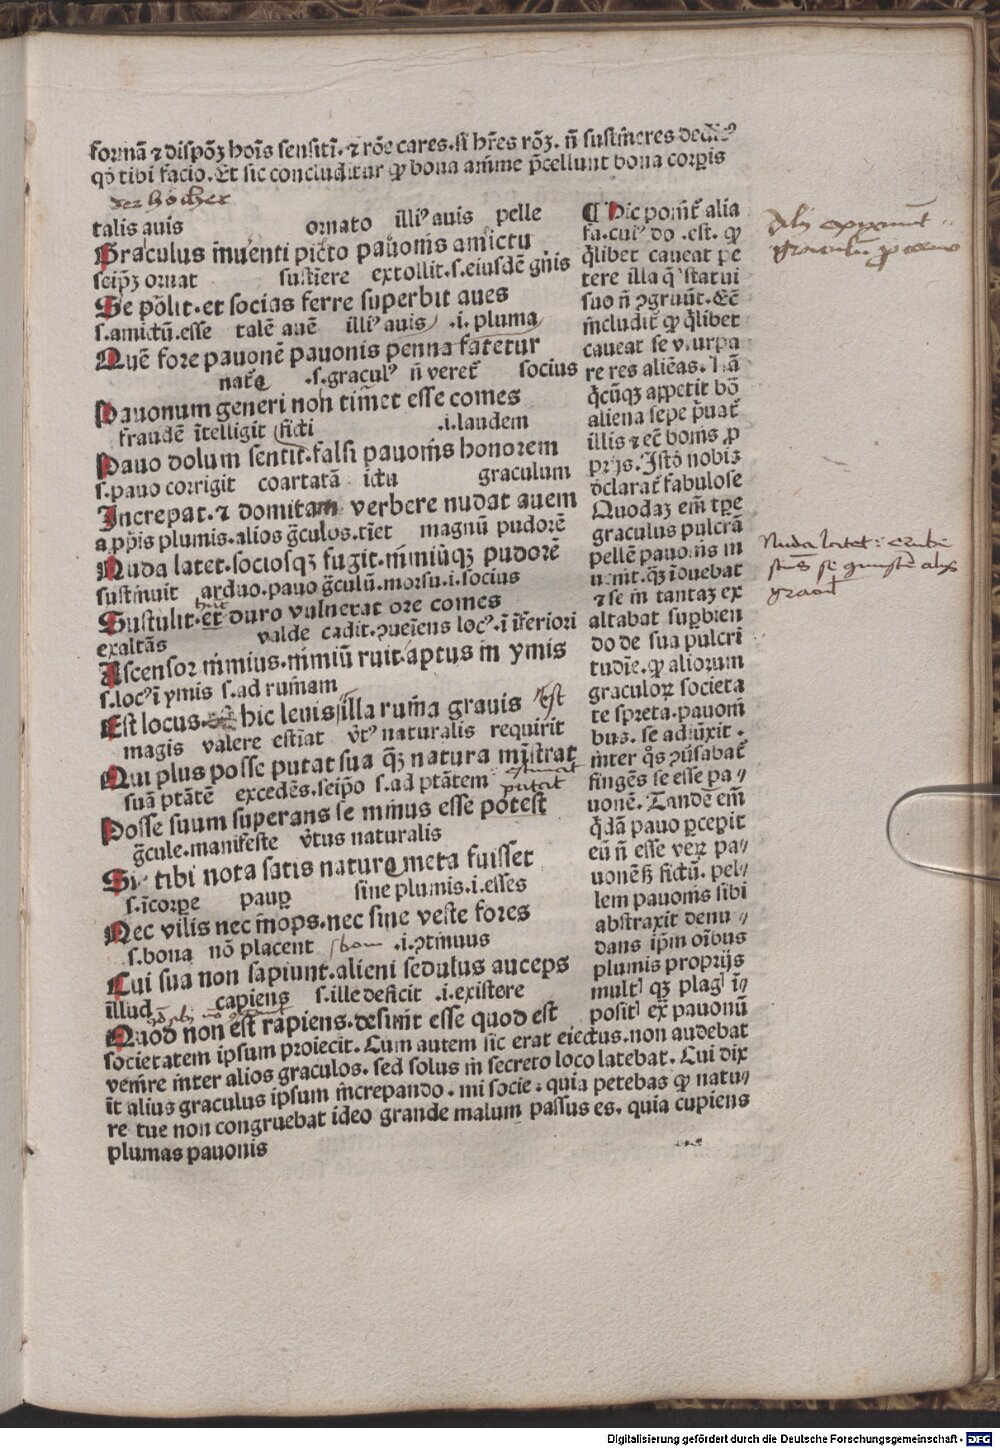 formã ⁊ dispõꝫ hoĩs sensitĩ. ⁊ rõe cares. si hr̃es rõꝫ. ñ sustĩneres
qđ tibi facio. Et sic concluditur ꝙ bona anĩme p̃cellunt bona corꝑis
der hocher
talis auis ornato illiꝰ auis pelle
Graculus inuenti picto pauonis amictu
seip̃ꝫ ornat sustiere extollit. s. eiusdẽ gñis
Se põlit. et socias ferre superbit aues
s. amictũ. esse talẽ auẽ illiꝰ auis .i. pluma
Quẽ fore pauonẽ pauonis penna fatetur
.s. graculꝰ ñ veret᷑ socius
Pauonum generi non timet esse comes
fraudẽ ĩtelligit ficti .i. laudem
Pauo dolum sentit. falsi pauonis honorem
s. pauo corrigit coartatã ictu graculum
Increpat. ⁊ domitam verbere nudat auem
a ꝓp̃is plumis. alios g̃culos. tiet magnũ pudorẽ
Nuda latet. sociosqꝫ fugit. nimiũqꝫ pudorẽ
sustinuit arduo. pauo g̃culũ. morsu. i. socius
Sustulit. et duro vulnerat ore comes
exaltãs valde cadit. ꝯueiẽns locꝰ. ĩ ĩferiori
Ascensor nimius. nimiũ ruit. aptus in ymis
s. locꝰ ĩ ymis s. ad ruinam
Est locus. hic leuis illa ruina grauis est
magis valere estĩat vtꝰ naturalis requirit
Qui plus posse putat sua q̃ꝫ natura mĩstrat
estimat
suã ptãtẽ excedẽs. seip̃o s. ad ptãtem putat
Posse suum superans se minus esse potest
g̃cule. manifeste v̾tus naturalis
Si tibi nota satis nature meta fuisset
s. ĩcorpe pauꝑ sine plumis. i. esses
Nec vilis nec inops. nec sine veste fores
s. bona nõ placent .i. ꝯtinuus
Cui sua non sapiunt. alieni sedulus auceps
illud capiens s. ille deficit .i. existere
Quod non est rapiens. desinit esse quod est
¶ Hic ponit᷑ alia
fa. cuiꝰ do .est. ꝙ
q̃libet caueat pe
tere illa q̃ statui
suo ñ ꝯgruũt. Et̃
includit᷑ ꝙ q̃libet
caueat se vsurpa
re res aliẽas. Nã
q̃cũqꝫ appetit bõ
aliena sepe p̃uat᷑
illis ⁊ et̃ bonis ꝓ
prijs. Istõ nobis
d̾clarat᷑ fabulose
Quodaꝫ em̃ tꝑe
graculus pulcrã
pellẽ pauonis in
uenit. q̃ꝫ iduebat
⁊ se in tantaꝫ ex
altabat suꝑbien
do de sua pulcri
tudĩe. ꝙ aliorum
graculoꝝ societa
te spreta. pauoni
bus. se adiũxit.
inter q̃s ꝯũsabat᷑
fingẽs se esse pa⸗
uonẽ. Tandẽ em̃
q̃dã pauo ꝑcepit
eũ ñ esse veꝝ pa⸗
uonẽ ß fictũ. pel⸗
lem pauonis sibi
abstraxit denu⸗
dans ip̃m oĩbus
plumis proprijs
multꝭ qꝫ plagꝭ ĩ⸗
positꝭ ex̃ pauonũ
societatem ipsum proiecit. Cum autem sic erat eiectus. non audebat
venire inter alios graculos. sed solus in secreto loco latebat. Cui dix
it alius graculus ipsum increpando. mi socie: quia petebas ꝙ natu⸗
re tue non congruebat ideo grande malum passus es. quia cupiens
plumas pauonis
Nuda latet:
Digitalisierung gefördert durch die Deutsche Forschungsgemeinschaft - DFG